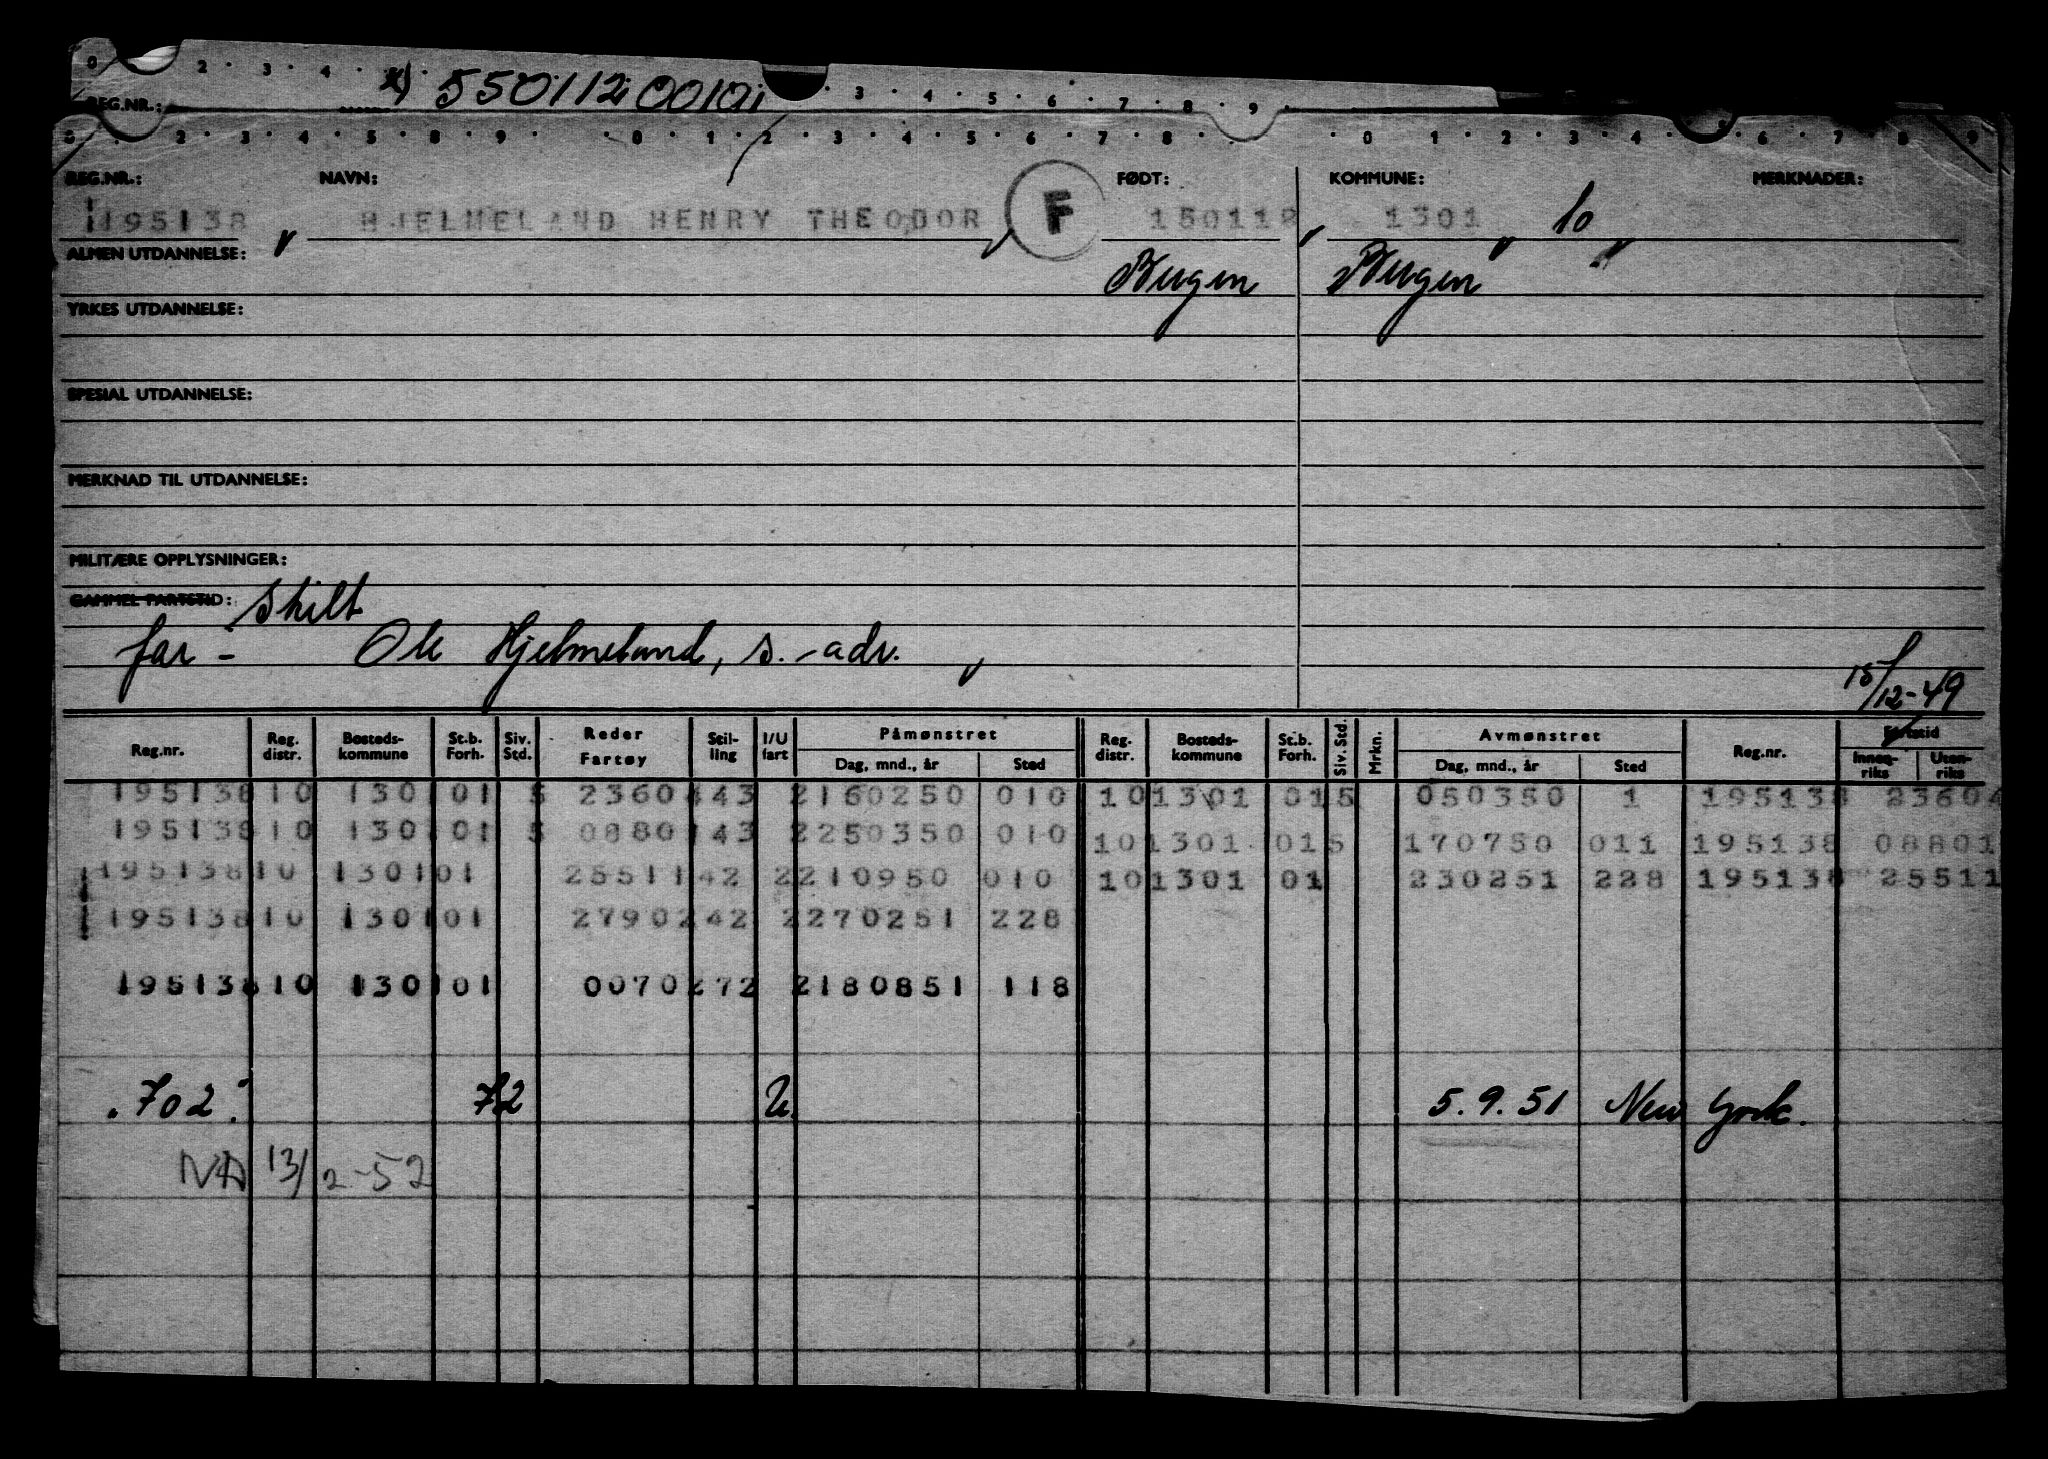 0 2 3 4 3 4 5 6 7 8 9
REG.NR.: x) 550112 00101
0 2 3 4 5 8 9 0 1 2 3 4 5 6 7 8 0 1 2 3 4 6 7 8 9
REG.NR.: NAVN: FØDT: KOMMUNE: MERKNADER:
195138 HJELMELAND HENRY THEODOR F 150112 1301 10
ALMEN UTDANNELSE: Bergen Bergen
YRKES UTDANNELSE:
SPESIAL UTDANNELSE:
MERKNAD TIL UTDANNELSE:
MILITÆRE OPPLYSNINGER:
GAMMEL FARTSTID: Skilt
far - Ole Hjelmeland, s.-adv.
15/12-49
Reg.nr. Reg. distr. Bosteds-kommune St.b. Forh. Siv. Std. Reder Fartøy Stil-ling I/U fart Påmønstret Dag, mnd., år Sted Reg. distr. Bosteds-kommune St.b. Forh. Siv. Std. Mrkn. Avmønstret Dag, mnd., år Sted Reg.nr. Fartstid Innen-riks Uten-riks
195138 10 1301 01 5 23604 43 2 160250 010 10 1301 01 5 050350 1 195138 23604
195138 10 1301 01 5 08801 43 2 250350 010 10 1301 01 5 170750 011 195138 08801
195138 10 1301 01 25511 42 2 210950 010 10 1301 01 230251 228 195138 25511
195138 10 1301 01 27902 42 2 270251 228
195138 10 1301 01 00702 72 2 180851 118
702 72 U 5.9.51 New York.
NA 13/2-52